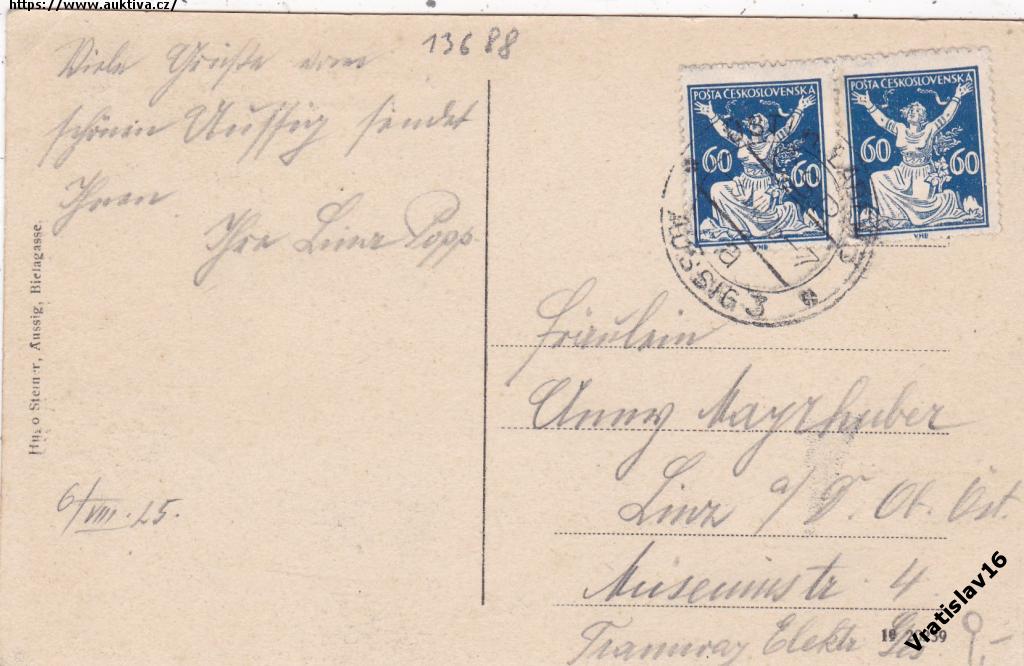 https://www.auktiva.cz/
13688
Viele Grüße vom
schönen Aussig sendet
Ihnen
Ihre Linz Popp
6/VIII. 25.
Hugo Steiner, Aussig, Bielagasse.
POŠTA ČESKOSLOVENSKÁ
60 60
VHB
POŠTA ČESKOSLOVENSKÁ
60 60
VHB
AUSSIG 3
Fräulein
Anny Mayrhuber
Linz a/D. Ob. Öst.
Museumstr. 4
Tramway Elektr. Ges
19
Vratislav16